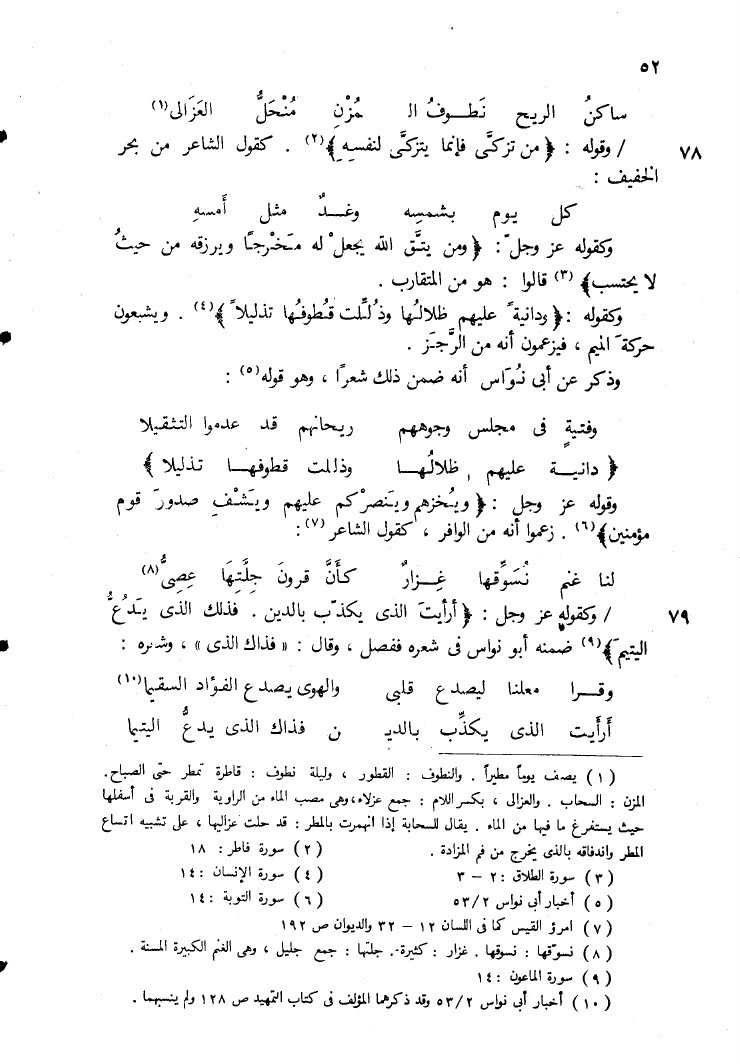 ٥٢
ساكنُ الريح نَطـوفُ الـ مُزْنِ مُنْحَلُّ العَزَالى(١)
٧٨ / وقوله : ﴿ من تزكَّى فإنما يتزكَّى لنفسِهِ ﴾(٢) . كقول الشاعر من بحر
الخفيف :
كل يوم بشمسِه وغـدٌ مثل أَمسهِ
وكقوله عز وجلّ : ﴿ ومن يتقِ الله يجعلْ له مَخْرجًا ويرزقه من حيثُ
لا يحتسب ﴾(٣) قالوا : هو من المتقارب .
وكقوله : ﴿ ودانيةً عليهم ظلالُها وذُلِّلت قُطوفُها تذليلاً ﴾(٤) . ويشبعون
حركةَ الميم ، فيزعمون أنه من الرَّجَز .
وذكر عن أبى نُوَاس أنه ضمن ذلك شعرًا ، وهو قوله(٥) :
وفتيةٍ فى مجلس وجوههم ريحانهم قد عدموا التثقيلا
﴿ دانيـة عليهم ظلالُهـا وذللت قطوفهـا تذليلا ﴾
وقوله عز وجل : ﴿ ويُخزهم وينصرْكم عليهم ويَشْفِ صدورَ قوم
مؤمنين ﴾(٦) . زعموا أنه من الوافر ، كقول الشاعر(٧) :
لنا غنم نُسَوِّقها غِـزارٌ كأَنَّ قرونَ جِلَّتِهَا عِصِىُّ(٨)
٧٩ / وكقوله عز وجل : ﴿ أرأيتَ الذى يكذّب بالدين . فذلك الذى يَدُعُّ
اليتيمَ ﴾(٩) ضمنه أبو نواس فى شعره ففصل ، وقال : « فذاك الذى » ، وشعره :
وقـرا معلنا ليصدع قلبى والهوى يصدع الفؤاد السقيما(١٠)
أَرأَيت الذى يكذِّب بالديـ ن فذاك الذى يدعُّ اليتيما
(١) يصف يوماً مطيراً . والنطوف : القطور ، وليلة نطوف : قاطرة تمطر حتى الصباح .
المزن : السحاب . والعزالى ، بكسر اللام : جمع عزلاء ، وهى مصب الماء من الراوية والقربة فى أسفلها
حيث يستفرغ ما فيها من الماء . يقال للسحابة إذا انهمرت بالمطر : قد حلت عزاليها ، على تشبيه اتساع
المطر واندفاقه بالذى يخرج من فم المزادة . (٢) سورة فاطر : ١٨
(٣) سورة الطلاق : ٢ – ٣ (٤) سورة الإنسان : ١٤
(٥) أخبار أبى نواس ٥٣/٢ (٦) سورة التوبة : ١٤
(٧) امرؤ القيس كما فى اللسان ١٢ – ٣٢ والديوان ص ١٩٢
(٨) نسوّقها : نسوقها . غزار : كثيرة . جلتها : جمع جليل ، وهى الغنم الكبيرة المسنة .
(٩) سورة الماعون : ١٤
(١٠) أخبار أبى نواس ٥٣/٢ وقد ذكرهما المؤلف فى كتاب التمهيد ص ١٢٨ ولم ينسبهما .